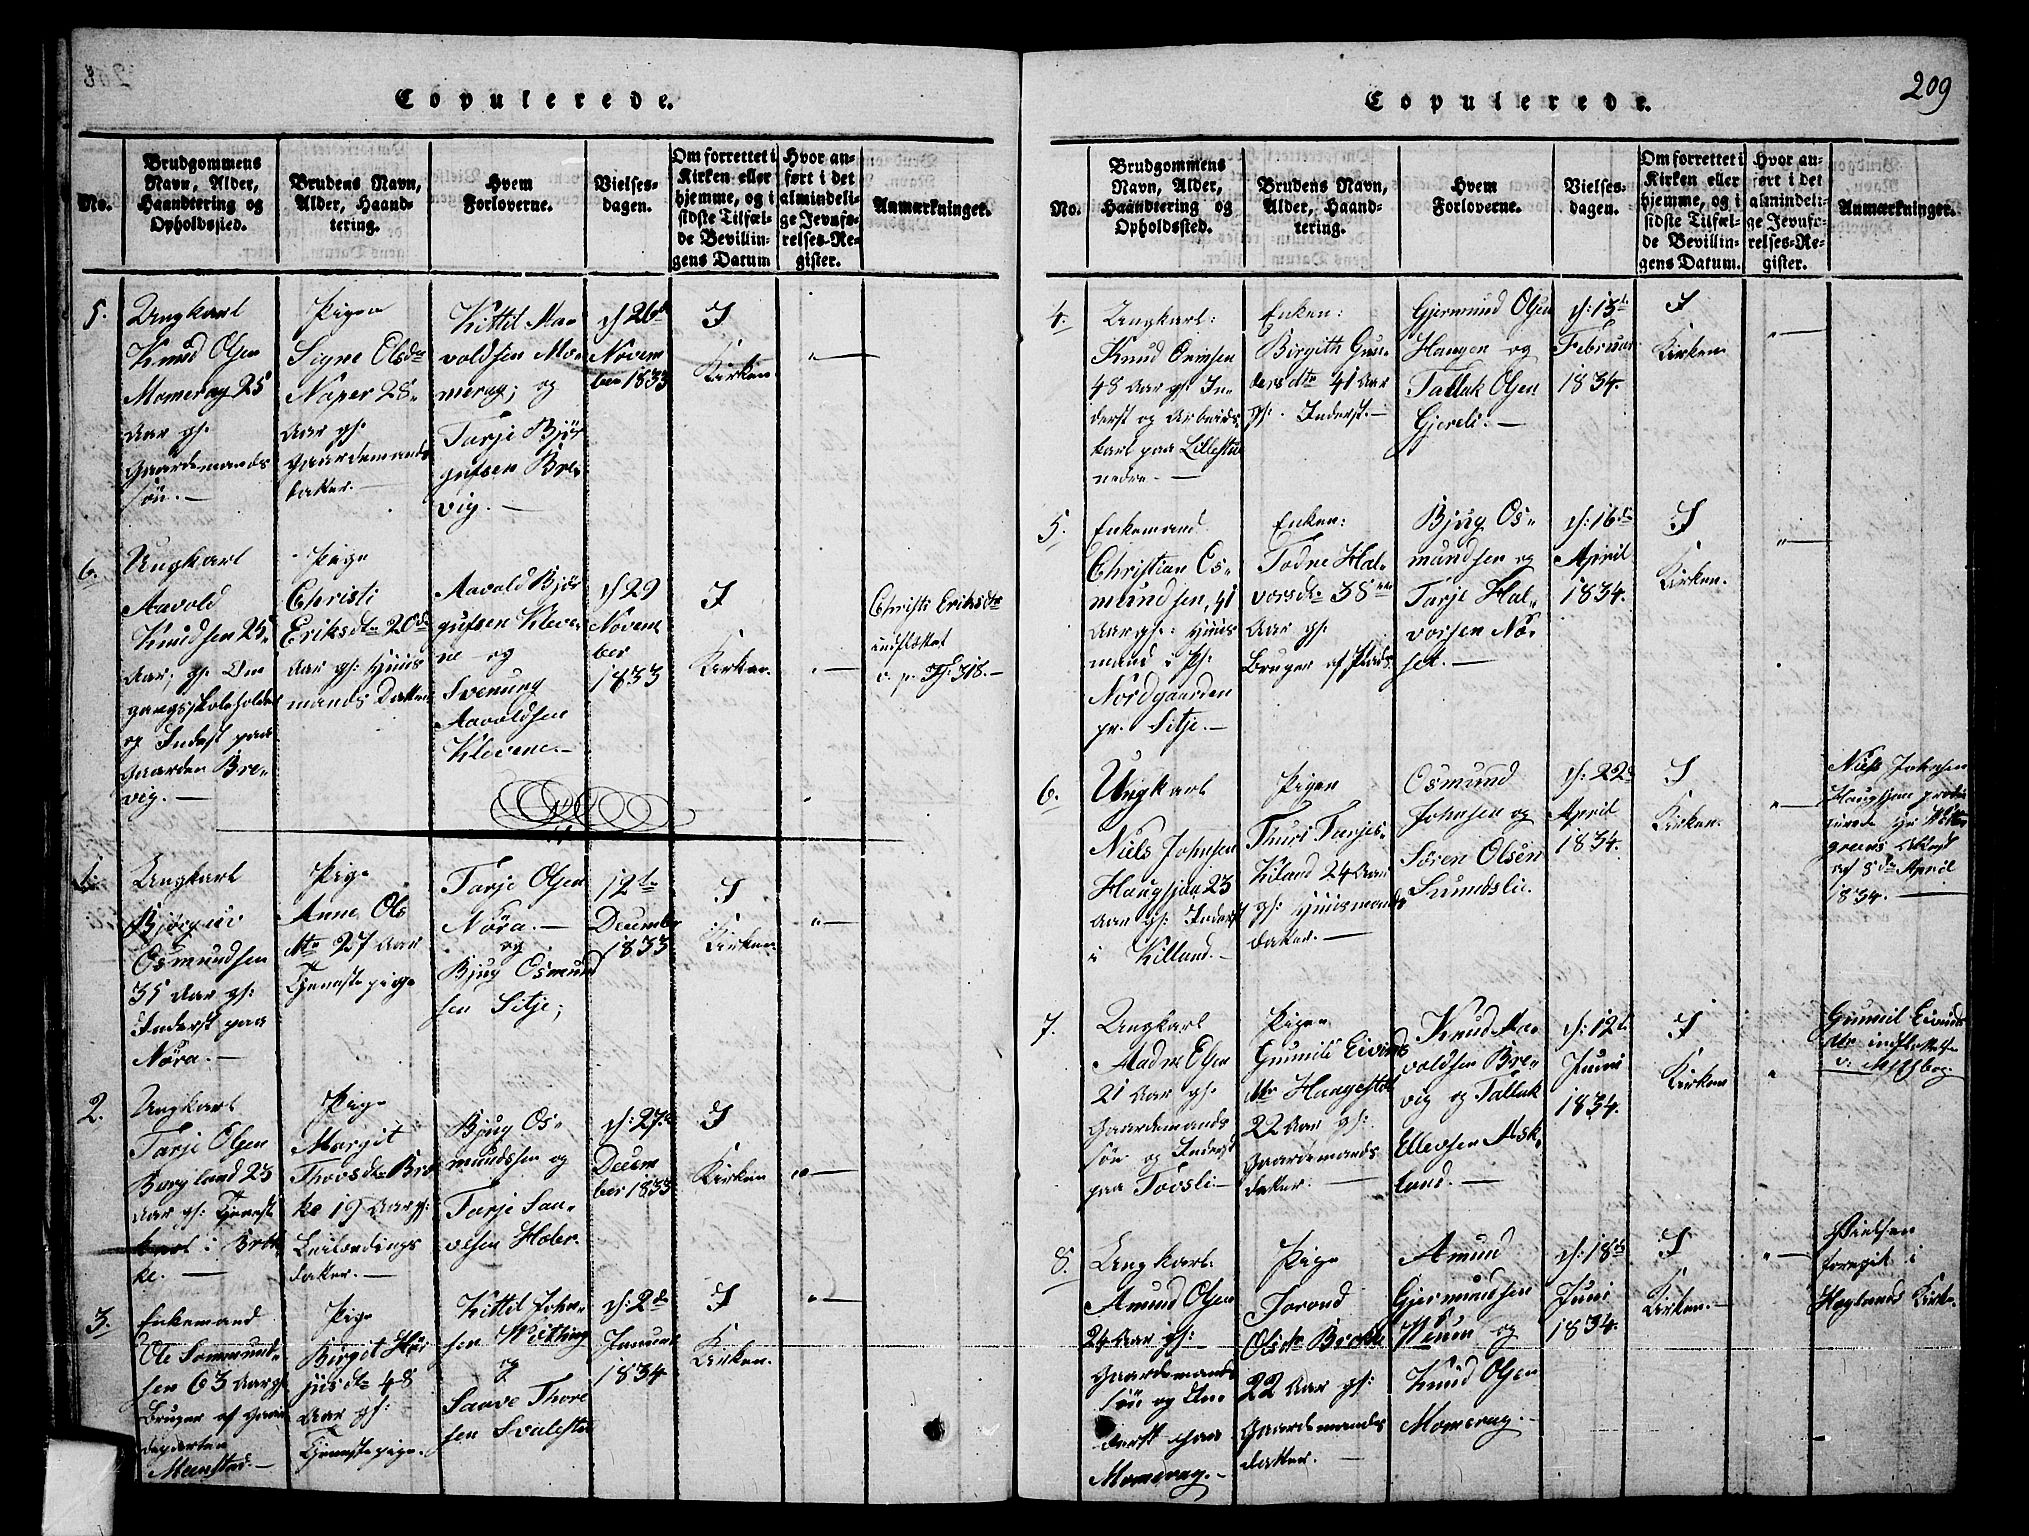 Copulerede.
No.
Brudgommens
Navn, Alder,
Haandtering og
Opholdssted.
Brudens Navn,
Alder, Haand-
tering.
Hvem
Forloverne.
Vielses-
dagen.
Om forrettet i
Kirken eller
hjemme, og i
sidste Tilfæl-
de Bevillin-
gens Datum
Hvor an-
ført i det
almindeli-
ge Jevnfø-
relses-Re-
gister.
Anmærkninger.
5.
Ungkarl
Knud Olsen
Momerag 25
Aar gl:
Gaardemands
søn. —
Pigen
Signe Olsdr
Naper 28
Aar gl:
Gaardemands
datter. —
Kittil Aa-
voldsen Mo-
merag; og
Tarje Bjør
gufsen Bre-
vig. —
d: 26de
Novem
ber 1833
I
Kirken
"—
6.
Ungkarl
Aavold
Knudsen 25
Aar; gl: Om
gangsskoleholder
og Inderst paa
Gaarden Bre-
vig. —
Pige
Christi
Eriksdtr 20de
Aar gl: Huus
mands Datter
Aavold Bjør
gufsen Kleve-
ne og
Svenung
Aavoldsen
Klevene. —
d 29
Novem
ber
1833
I
Kirken.
"—
Christi Eriksdtr
indflottet
v. p. 318. —
1.
Ungkarl
Osmundsen
35 Aar gl:
Inderst paa
Nøra. —
Pige
Anne Ols
dtr 27 Aar
Tjenestepige
Tarje Olsen
Nøra. —
og
Bjug Osmund
sen Sitje;
12te
December
1833
I
Kirken.
"—
2.
Ungkarl
Tarje Olsen
Borgland 23
Aar gl: Tjeneste
karl i Brok
ke. —
Pige
Margit
Thorsdtr Brok
ke 19 Aar gl:
Leilændings
datter. —
Bjug Os-
mundssen og
Tarje Saa-
vesen
d: 27de
Decem
ber 1833
I
Kirken
"—
3.
Enkemand
Ole Sommund-
sen 63 Aar gl:
Bruger af Gaar
departen
Pige
Birgit
48
Aar gl:
Tjenestepige.
Kittil John-
sen
og
Saave Thore
sen
d: 2de
Januar
1834
I
Kirken.
"—
209
Copulerede.
No.
Brudgommens
Navn, Alder,
Haandtering og
Opholdssted.
Brudens Navn,
Alder, Haand-
tering.
Hvem
Forloverne.
Vielses-
dagen.
Om forrettet i
Kirken eller
hjemme, og i
sidste Tilfæl-
de Bevillin-
gens Datum.
Hvor an-
ført i det
almindeli-
ge Jevnfø-
relses-Re-
gister.
Anmærkninger.
4.
Ungkarl:
Knud
48 Aar gl: In-
derst og Arbeids
karl paa Lillestu
nedre. —
Enken:
Birgith Gun-
dersdtr 41 Aar
gl: Inderst. —
Gjermund Olsen
Haugen og
Tallak Olsen
Gjereli. —
d: 13de
Februar
1834.
I
Kirken
"—
5.
Enkemand
Christian Os-
mundsen, 41
Aar gl: Huus
mand i Pl:
Nordgaarden
pr. Sitje. —
Enken:
Todne Hal-
vorsdtr 38
Aar gl:
Bruger af Plads.
Bjug Os-
mundsen og
Tarje Hal-
vorsen
d: 16de
April
1834.
I
Kirken.
"—
6.
Ungkarl
Niels Johnsen
Haugsjaa 23
Aar gl: Inderst
i Killand. —
Pigen
Thuri Tarjes-
Kiland 24 Aar
gl: Huusmands
datter. —
Osmund
Johnsen og
Søren Olsen
d: 22de
April
1834.
I
Kirken.
"—
Niels Johnsen
Haugsjaa
af 5de April
1834. —
7.
Ungkarl
21 Aar gl:
Gaardemands
søn og Inderst
paa Tovsli —
Pigen
Gunnild Eivinds
dtr
22 Aar gl:
Gaardemands
datter. —
Knud Aa-
voldsen Bre-
vig og Tallak
Ellevsen Ask-
land. —
d: 12te
Juni
1834.
I
Kirken
"
Gunnild Eivinds
dtr indflottet
8.
Ungkarl:
Amund Olsen
24 Aar gl:
Gaardemands
søn og In
derst paa
Momerag. —
Pige
Torond
Olsdtr Brokke
22 Aar gl:
Gaardemands
datter.
Amund
Gjermundsen
og
Knud Olsen
Momerag. —
d: 18de
Juni
1834.
I
Kirken. —
"—
Vielsen
foregik i
Heglands Kirke.